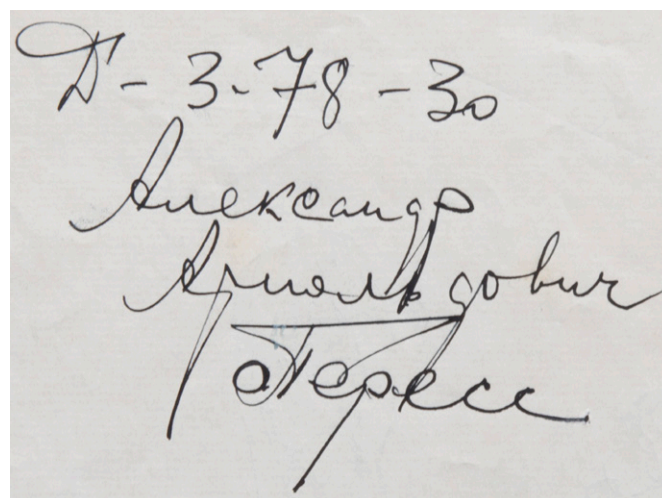 Д-3-78-30
Александр
Арнольдович
Пересс